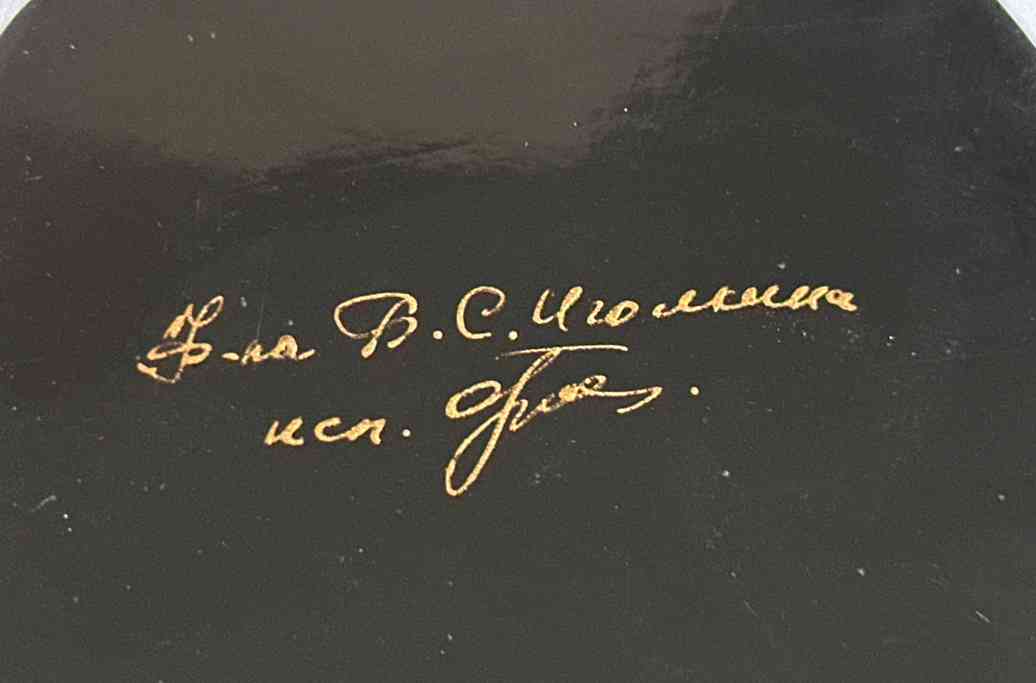 Ф-ла В.С. Иголкина
исп.